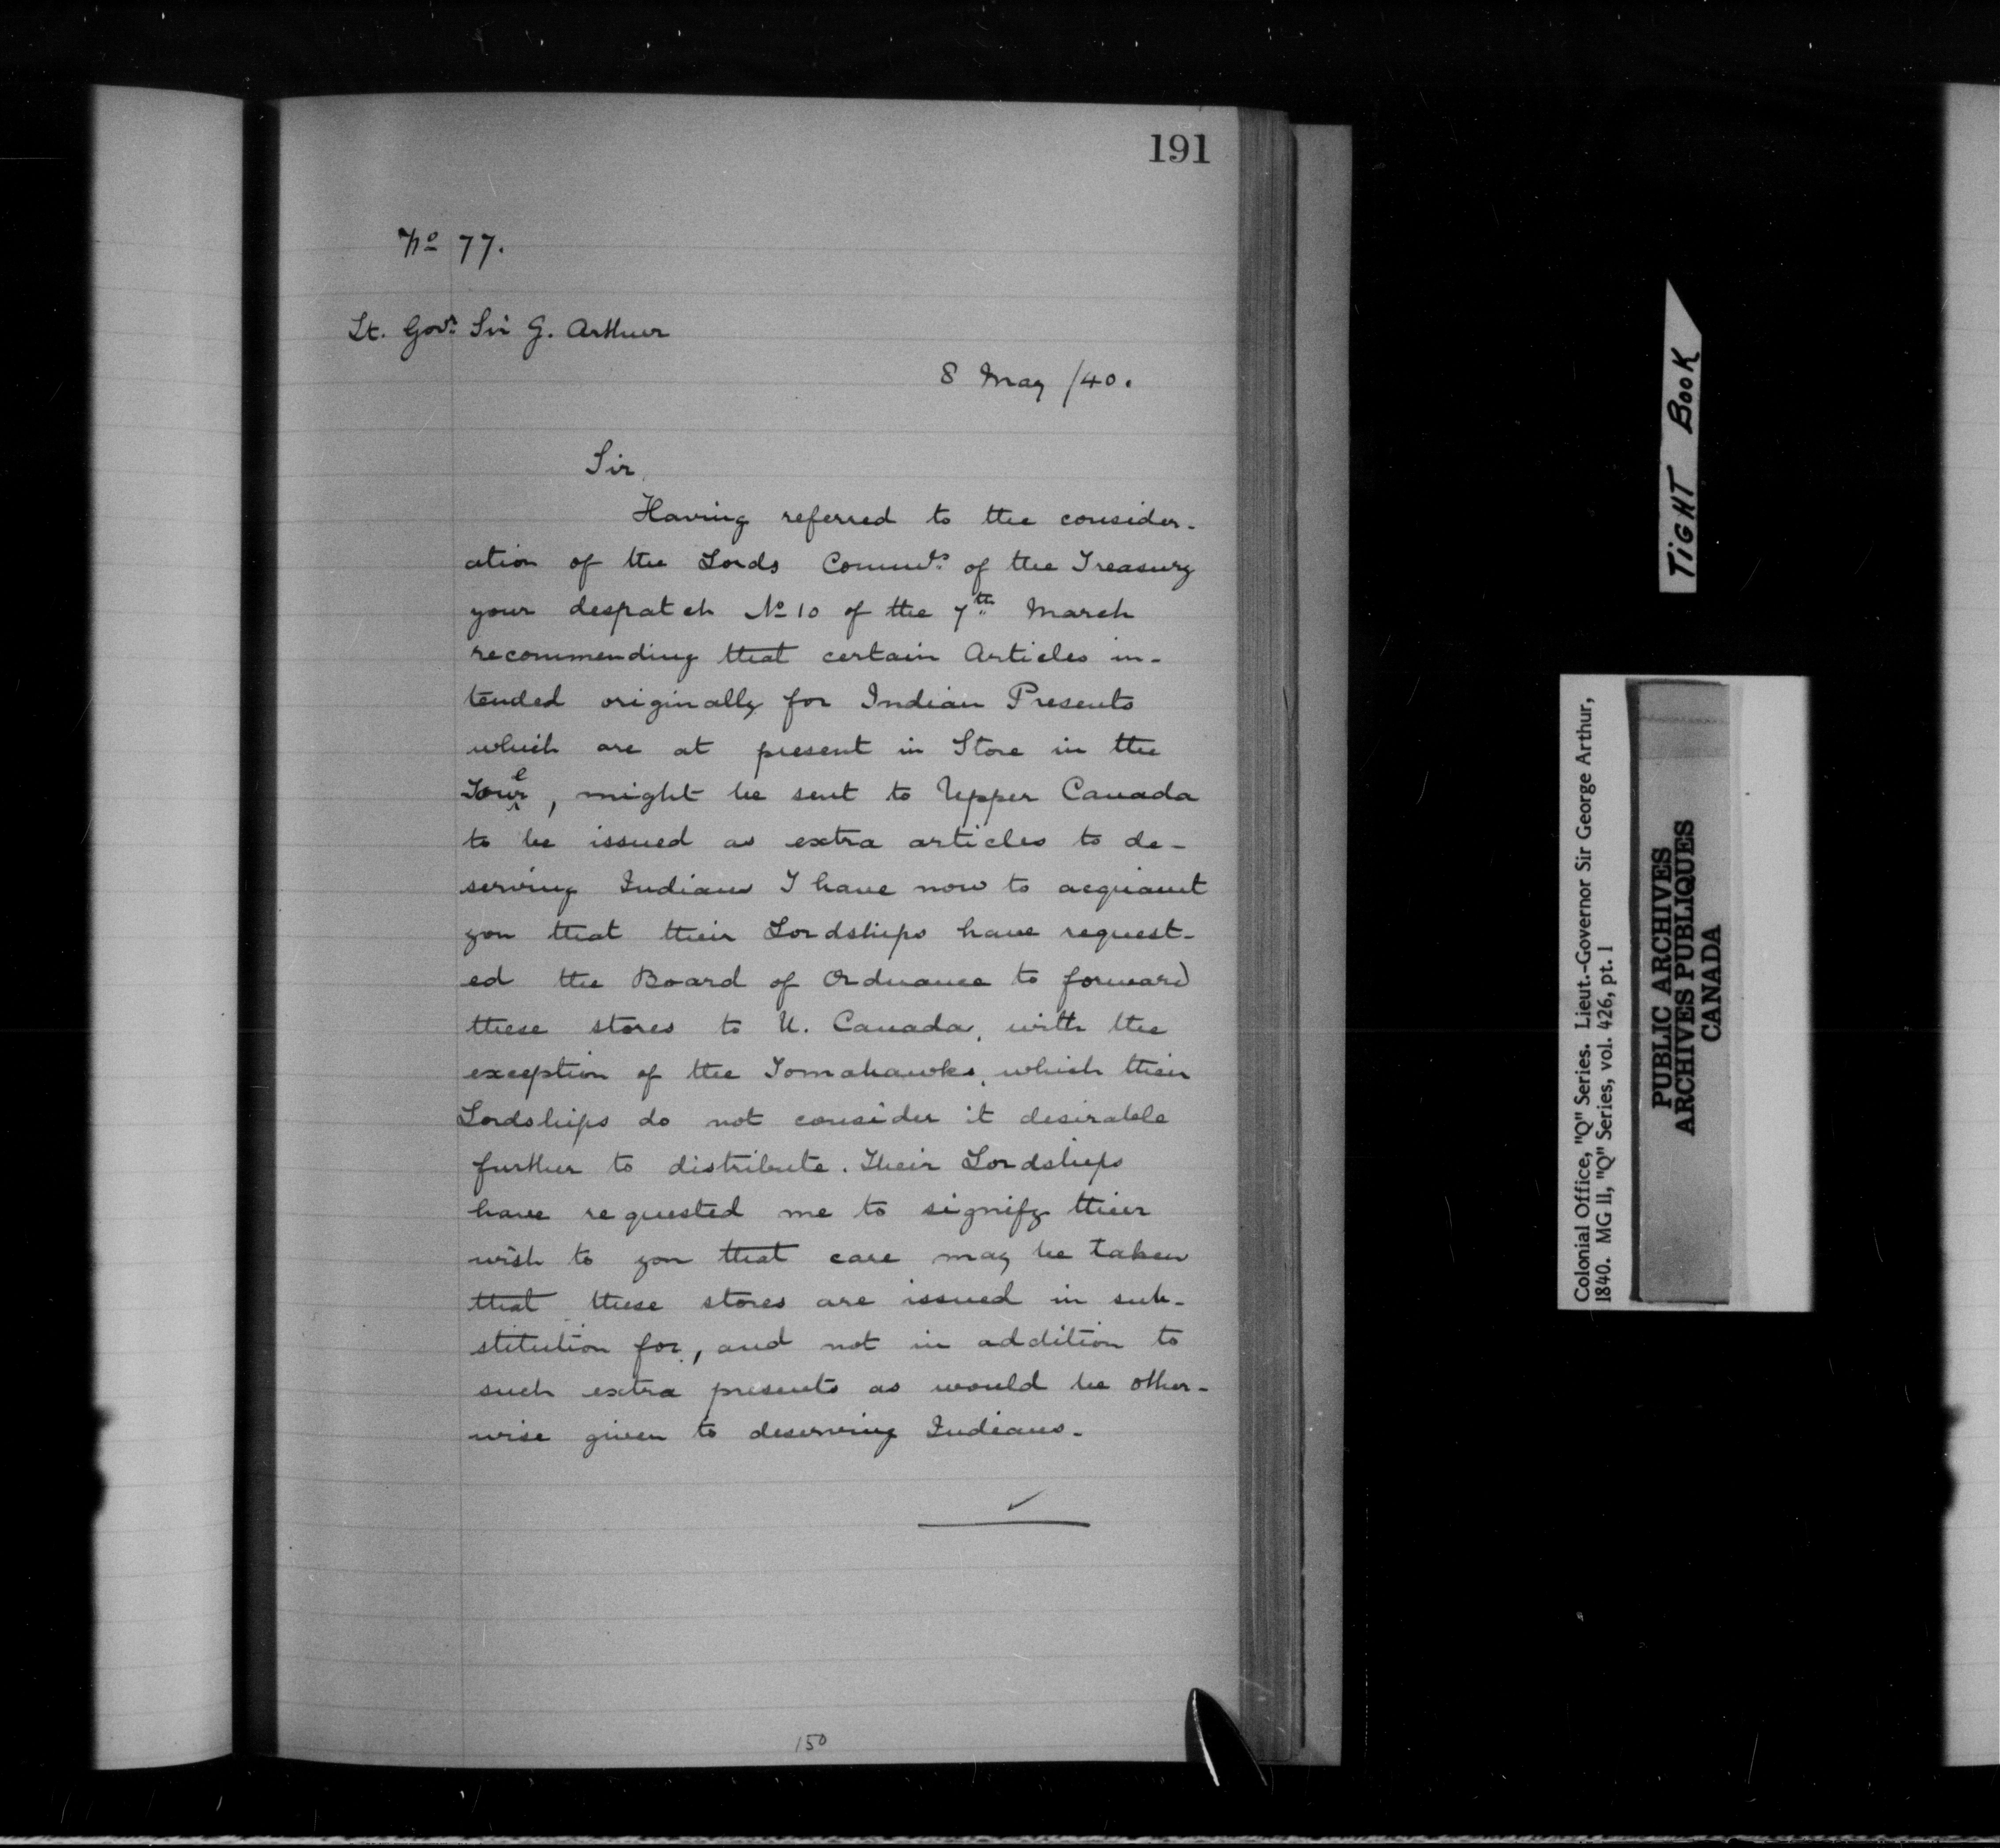 191
No 77.
Lt. Govr. Sir G. Arthur
8 May /40.
Sir,
Having referred to the consider-
ation of the Lords Commrs. of the Treasury
your despatch No 10 of the 7th March
recommending that certain Articles in-
tended originally for Indian Presents
which are at present in Store in the
Tower, might be sent to Upper Canada
to be issued as extra articles to de-
serving Indians I have now to acquaint
you that their Lordships have request-
ed the Board of Ordnance to forward
these stores to U. Canada, with the
exception of the Tomahawks, which their
Lordships do not consider it desirable
further to distribute. Their Lordships
have requested me to signify their
wish to you that care may be taken
that these stores are issued in sub-
stitution for, and not in addition to
such extra presents as would be other-
wise given to deserving Indians.
150
TIGHT BOOK
Colonial Office, "Q" Series. Lieut.-Governor Sir George Arthur,
1840. MG 11, "Q" Series, vol. 426, pt. 1
PUBLIC ARCHIVES
ARCHIVES PUBLIQUES
CANADA